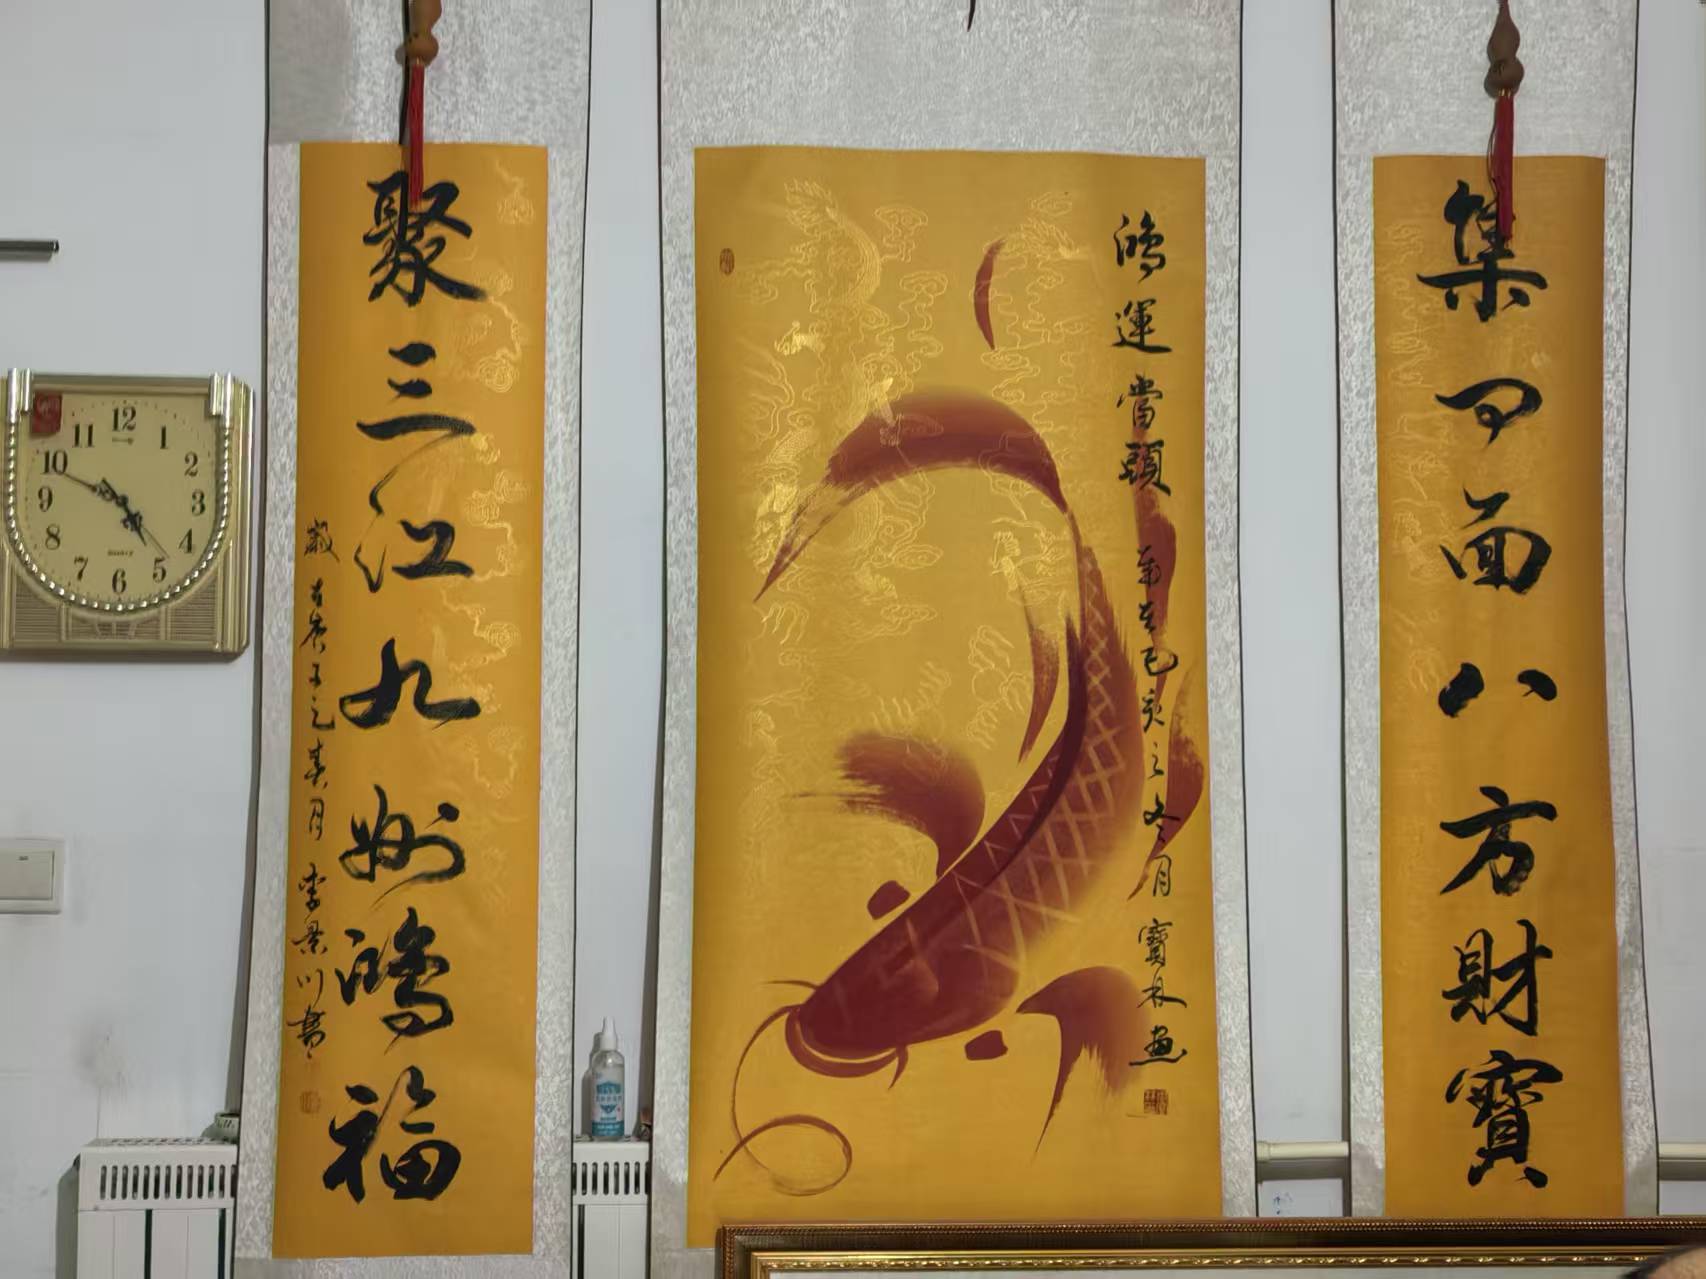 集四面八方財寶
鴻運當頭
歲在己亥之冬月 寶林畫
聚三江九州鴻福
歲在庚子之春月 李景川書
12
1
2
3
4
5
6
7
8
9
10
11
Quartz